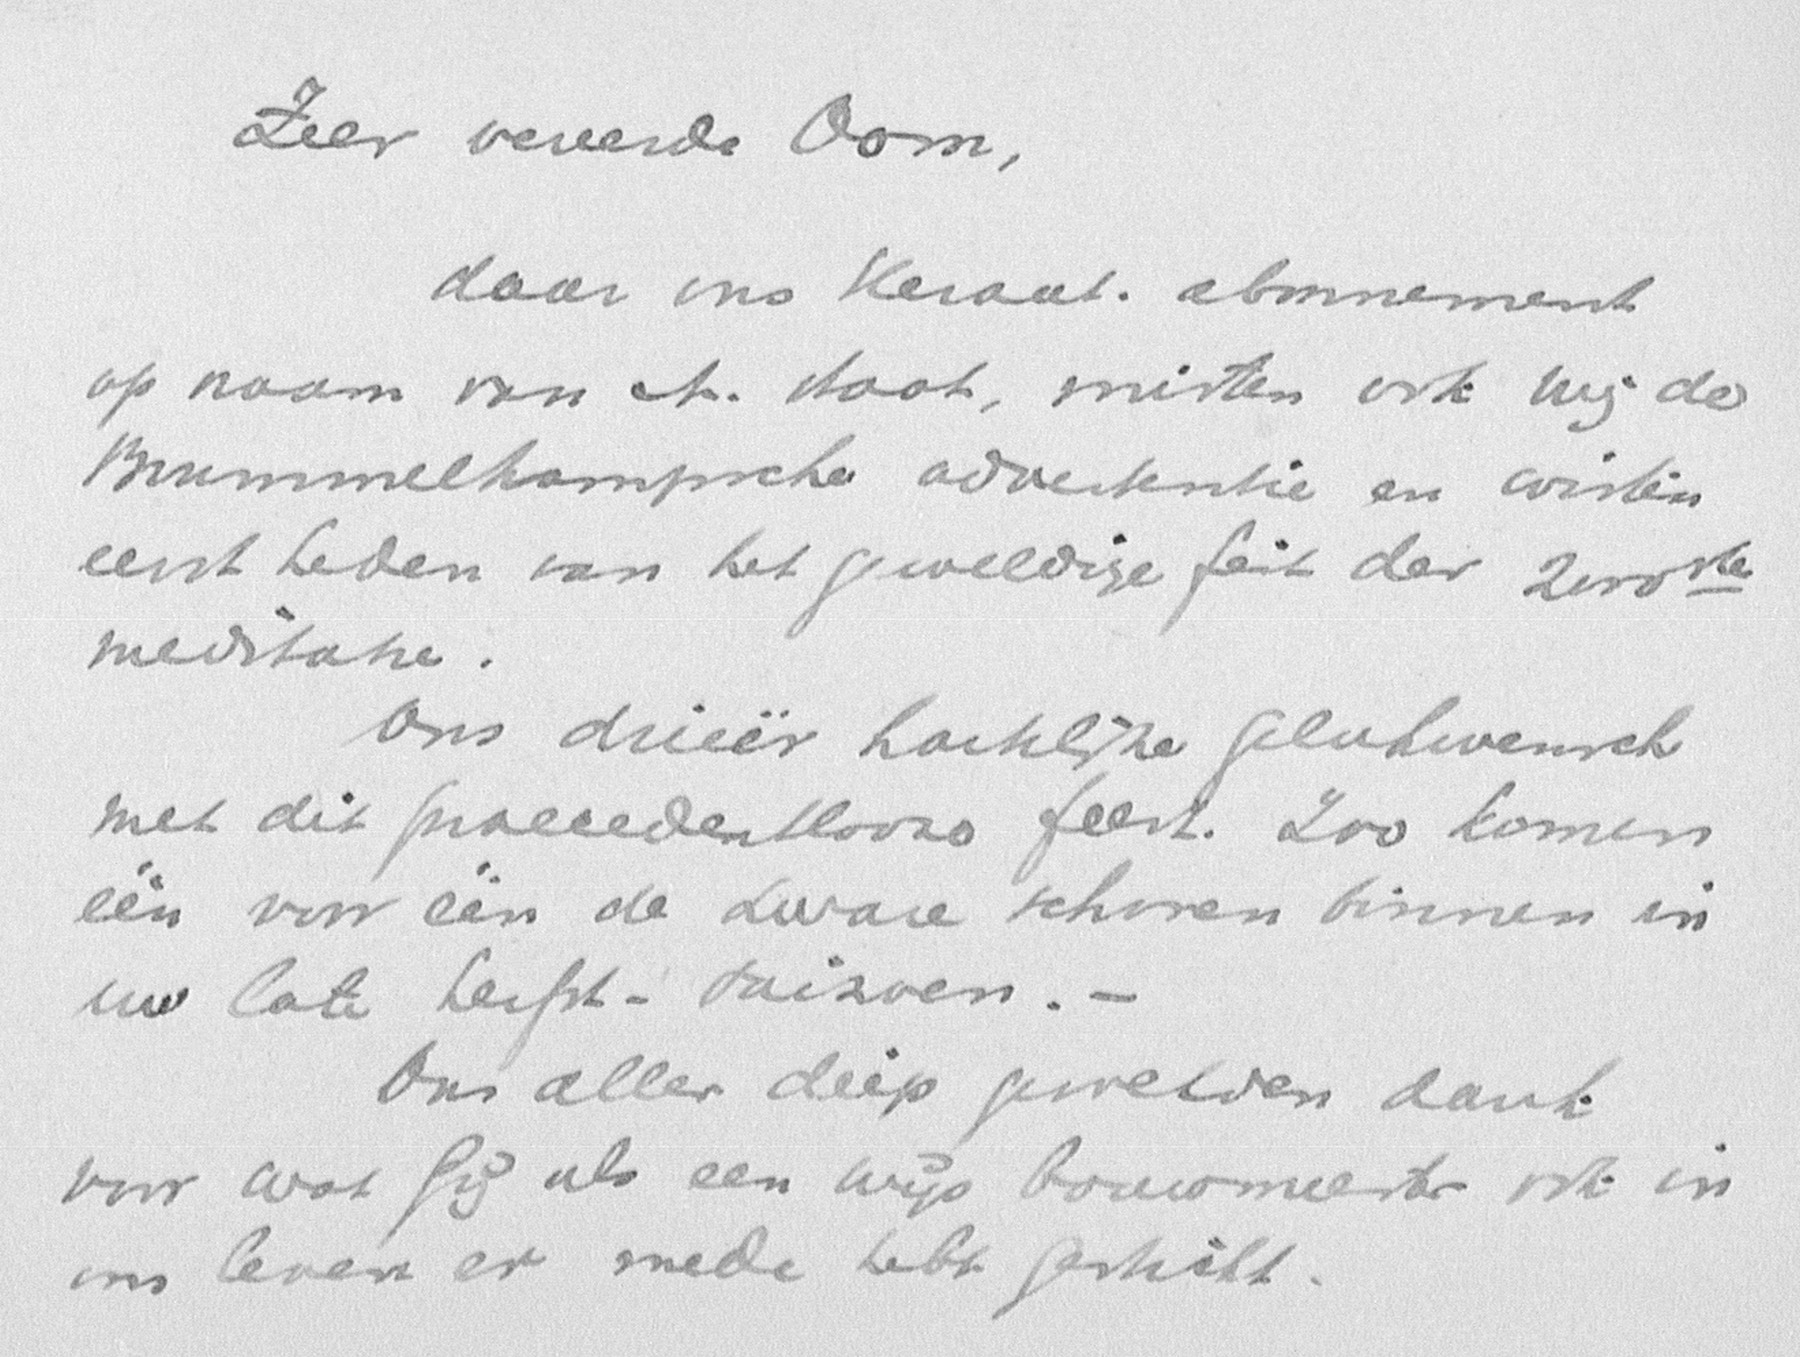 Zeer vereerde Oom,
daar ons Heraut. abonnement
op naam van st. staat, misten ook wij de
Brummelkampsche advertentie en wisten
eerst heden van het geweldige feit der 2000ste
meditatie.
Ons drieër hartelijke gelukwensch
met dit precedentlooze feest. Zoo komen
één voor één de zware schoven binnen in
uw late herfst-seizoen. –
Ons aller diep gevoelden dank
voor wat Gij als een wijs bouwmeester ook in
ons leven er mede hebt gesticht.